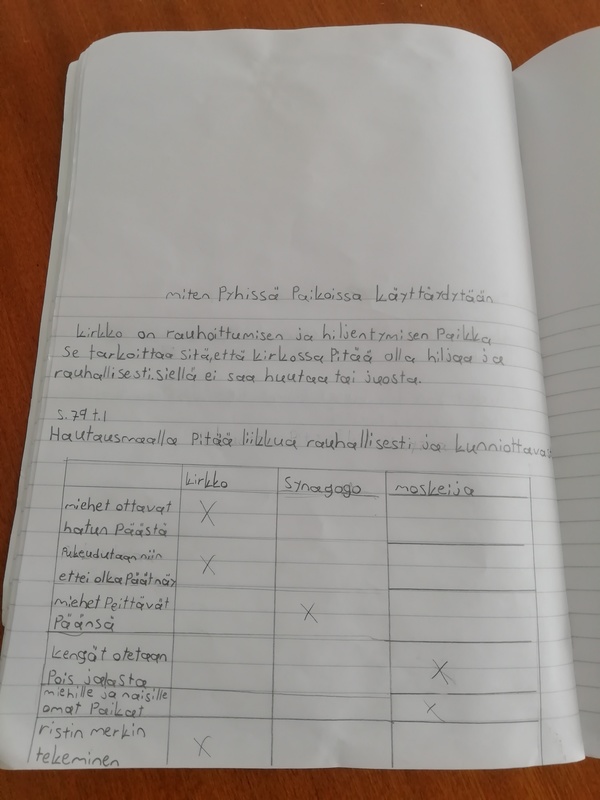 miten Pyhissä Paikoissa käyttäydytään
kirkko on rauhoittumisen ja hiljentymisen Paikka
Se tarkoittaa sitä, että kirkossa Pitää olla hiljaa ja
rauhallisesti. Siellä ei saa huutaa tai juosta.
s.79 t.1
Hautausmaalla Pitää liikkua rauhallisesti ja
kirkko Synagago moskeija
miehet ottavat X
hatun Päästä
Pukeudutaan niin X
ettei olkaPäät näy
miehet Peittävät X
Päänsä
kengät otetaan X
Pois jalasta
miehille ja naisille X
omat Paikat
ristin merkin X
tekeminen